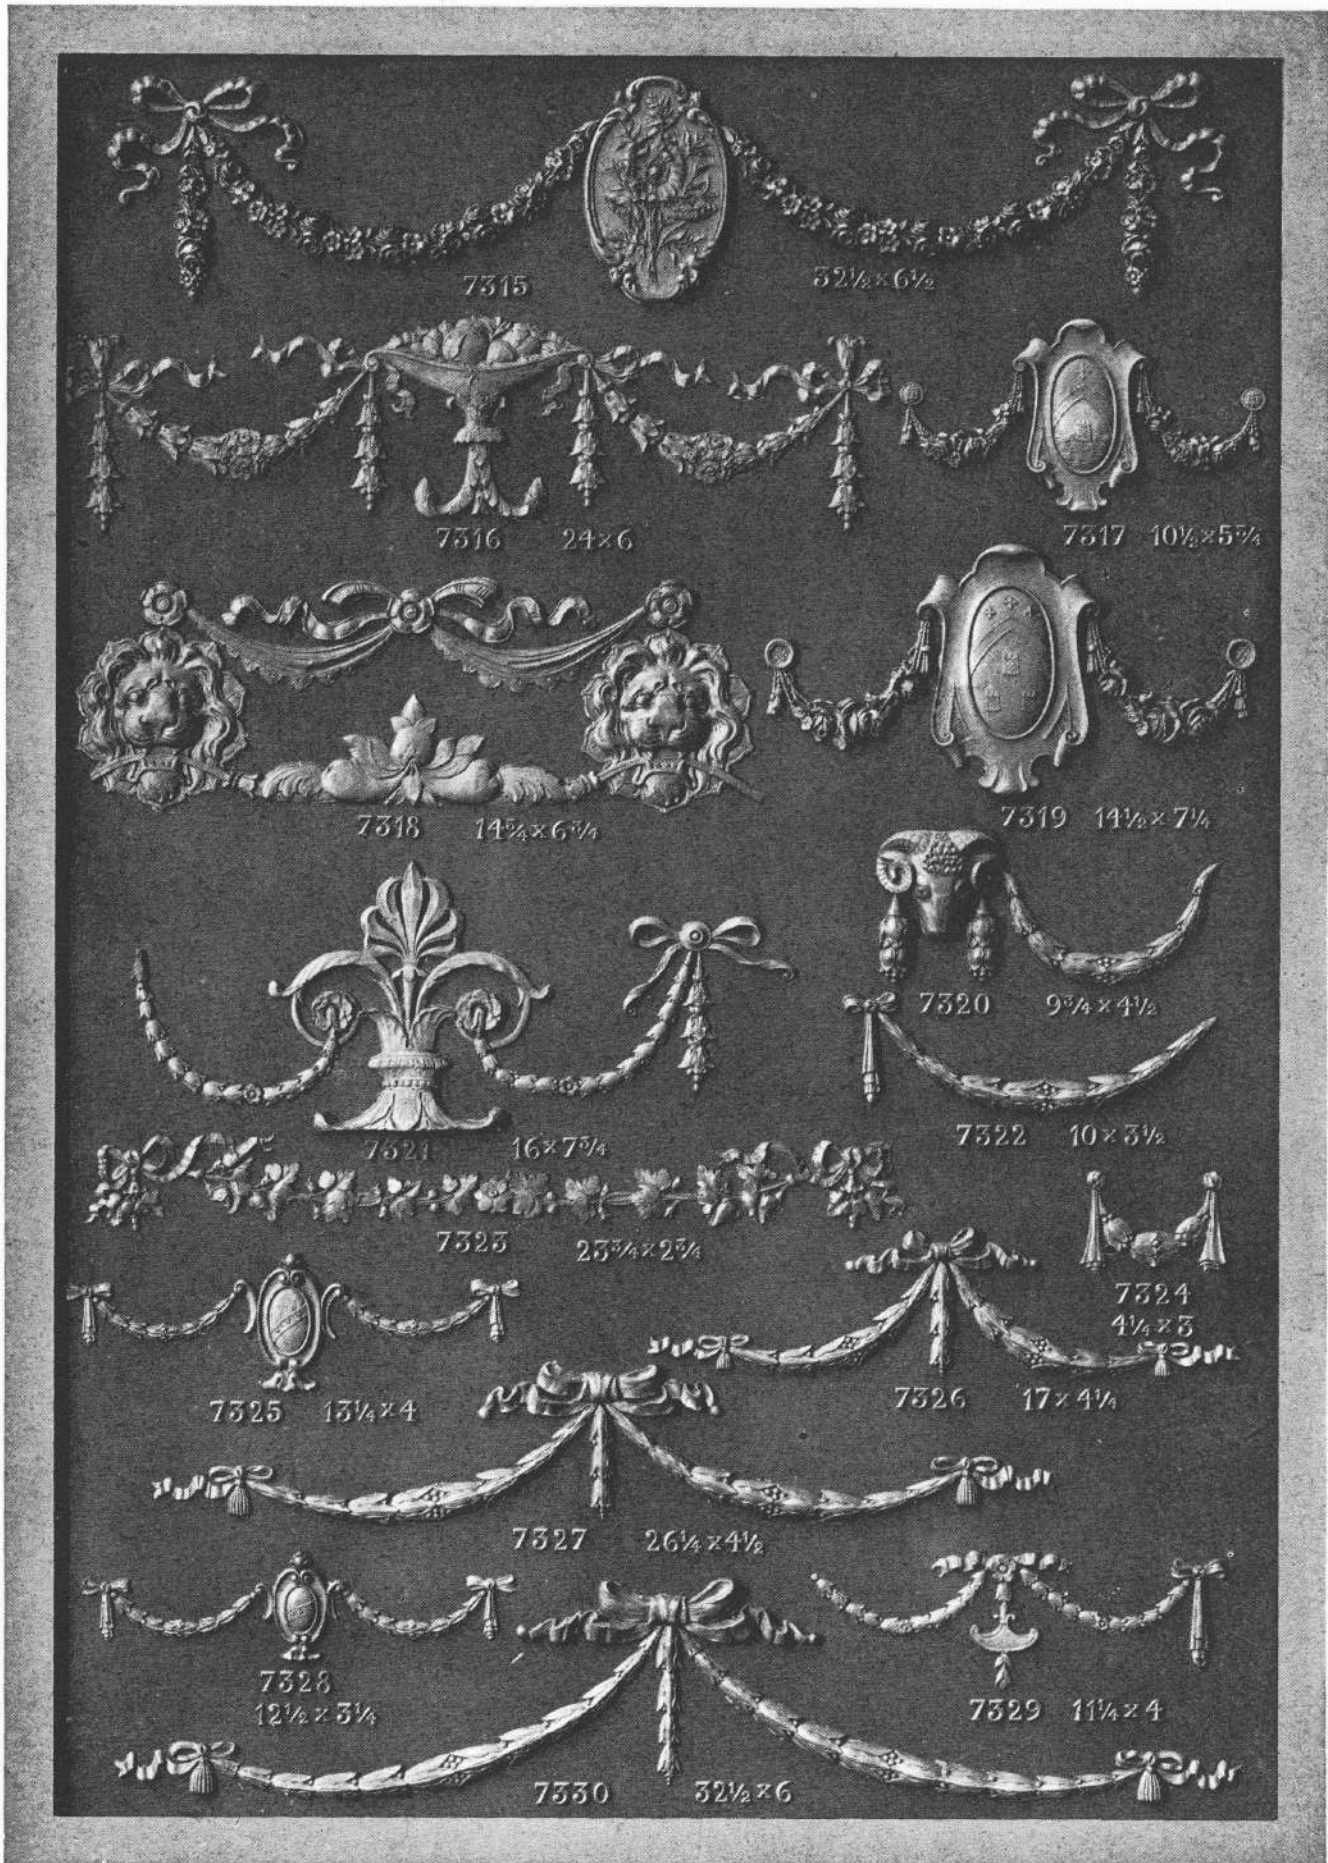 7315 32½×6½
7316 24×6
7317 10½×5¾
7318 14¾×6¾
7319 14½×7¼
7320 9¾×4½
7321 16×7¾
7322 10×3½
7323 23¾×2¾
7324
4¼×3
7325 13¼×4
7326 17×4¼
7327 26¼×4½
7328
12½×3¼
7329 11¼×4
7330 32½×6